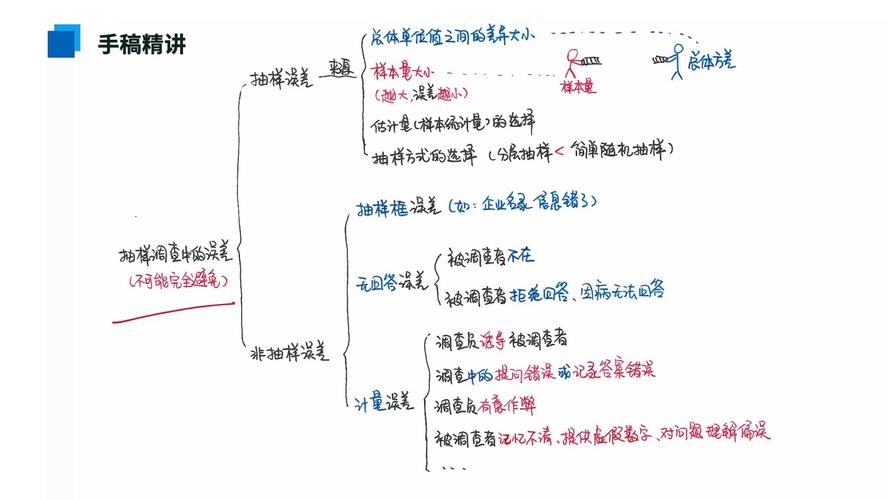 手稿精讲
总体单位值之间的差异大小
总体方差
抽样误差 来源
样本量大小
样本量
(越大,误差越小)
估计量(样本统计量)的选择
抽样方式的选择(分层抽样<简单随机抽样)
抽样框误差(如:企业名录信息错了)
抽样调查中的误差
(不可能完全避免)
被调查者不在
无回答误差
被调查者拒绝回答、因病无法回答
非抽样误差
调查员诱导被调查者
调查中的提问错误或记录答案错误
计量误差
调查员有意作弊
被调查者记忆不清、提供虚假数字、对问题理解偏误
...